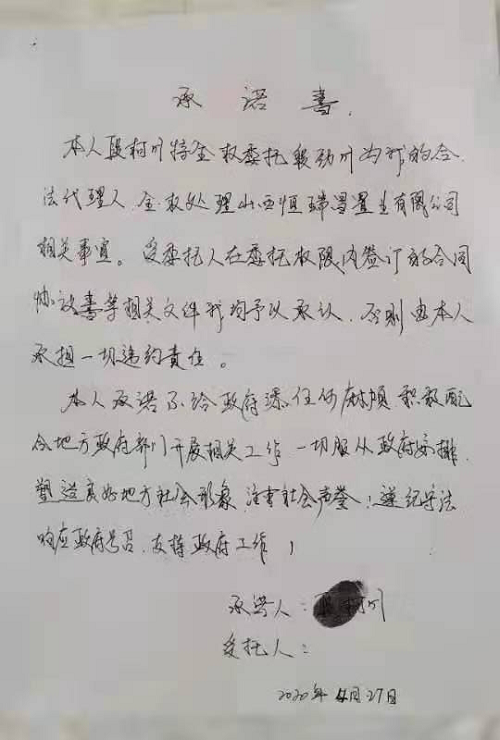 承诺书.
本人段柯川特全权委托段劲川为我的合
法代理人.全权处理山西恒瑞昌置业有限公司
相关事宜。受委托人在委托权限内签订的合同
协议书等相关文件我均予以承认.否则由本人
承担一切违约责任。
本人承诺不给政府添任何麻烦 积极配
合地方政府部门开展相关工作 一切服从政府安排.
塑造良好地方社会形象 注重社会声誉;遵纪守法
响应政府号召.支持政府工作!
承诺人:柯川
受托人:
2020年4月27日